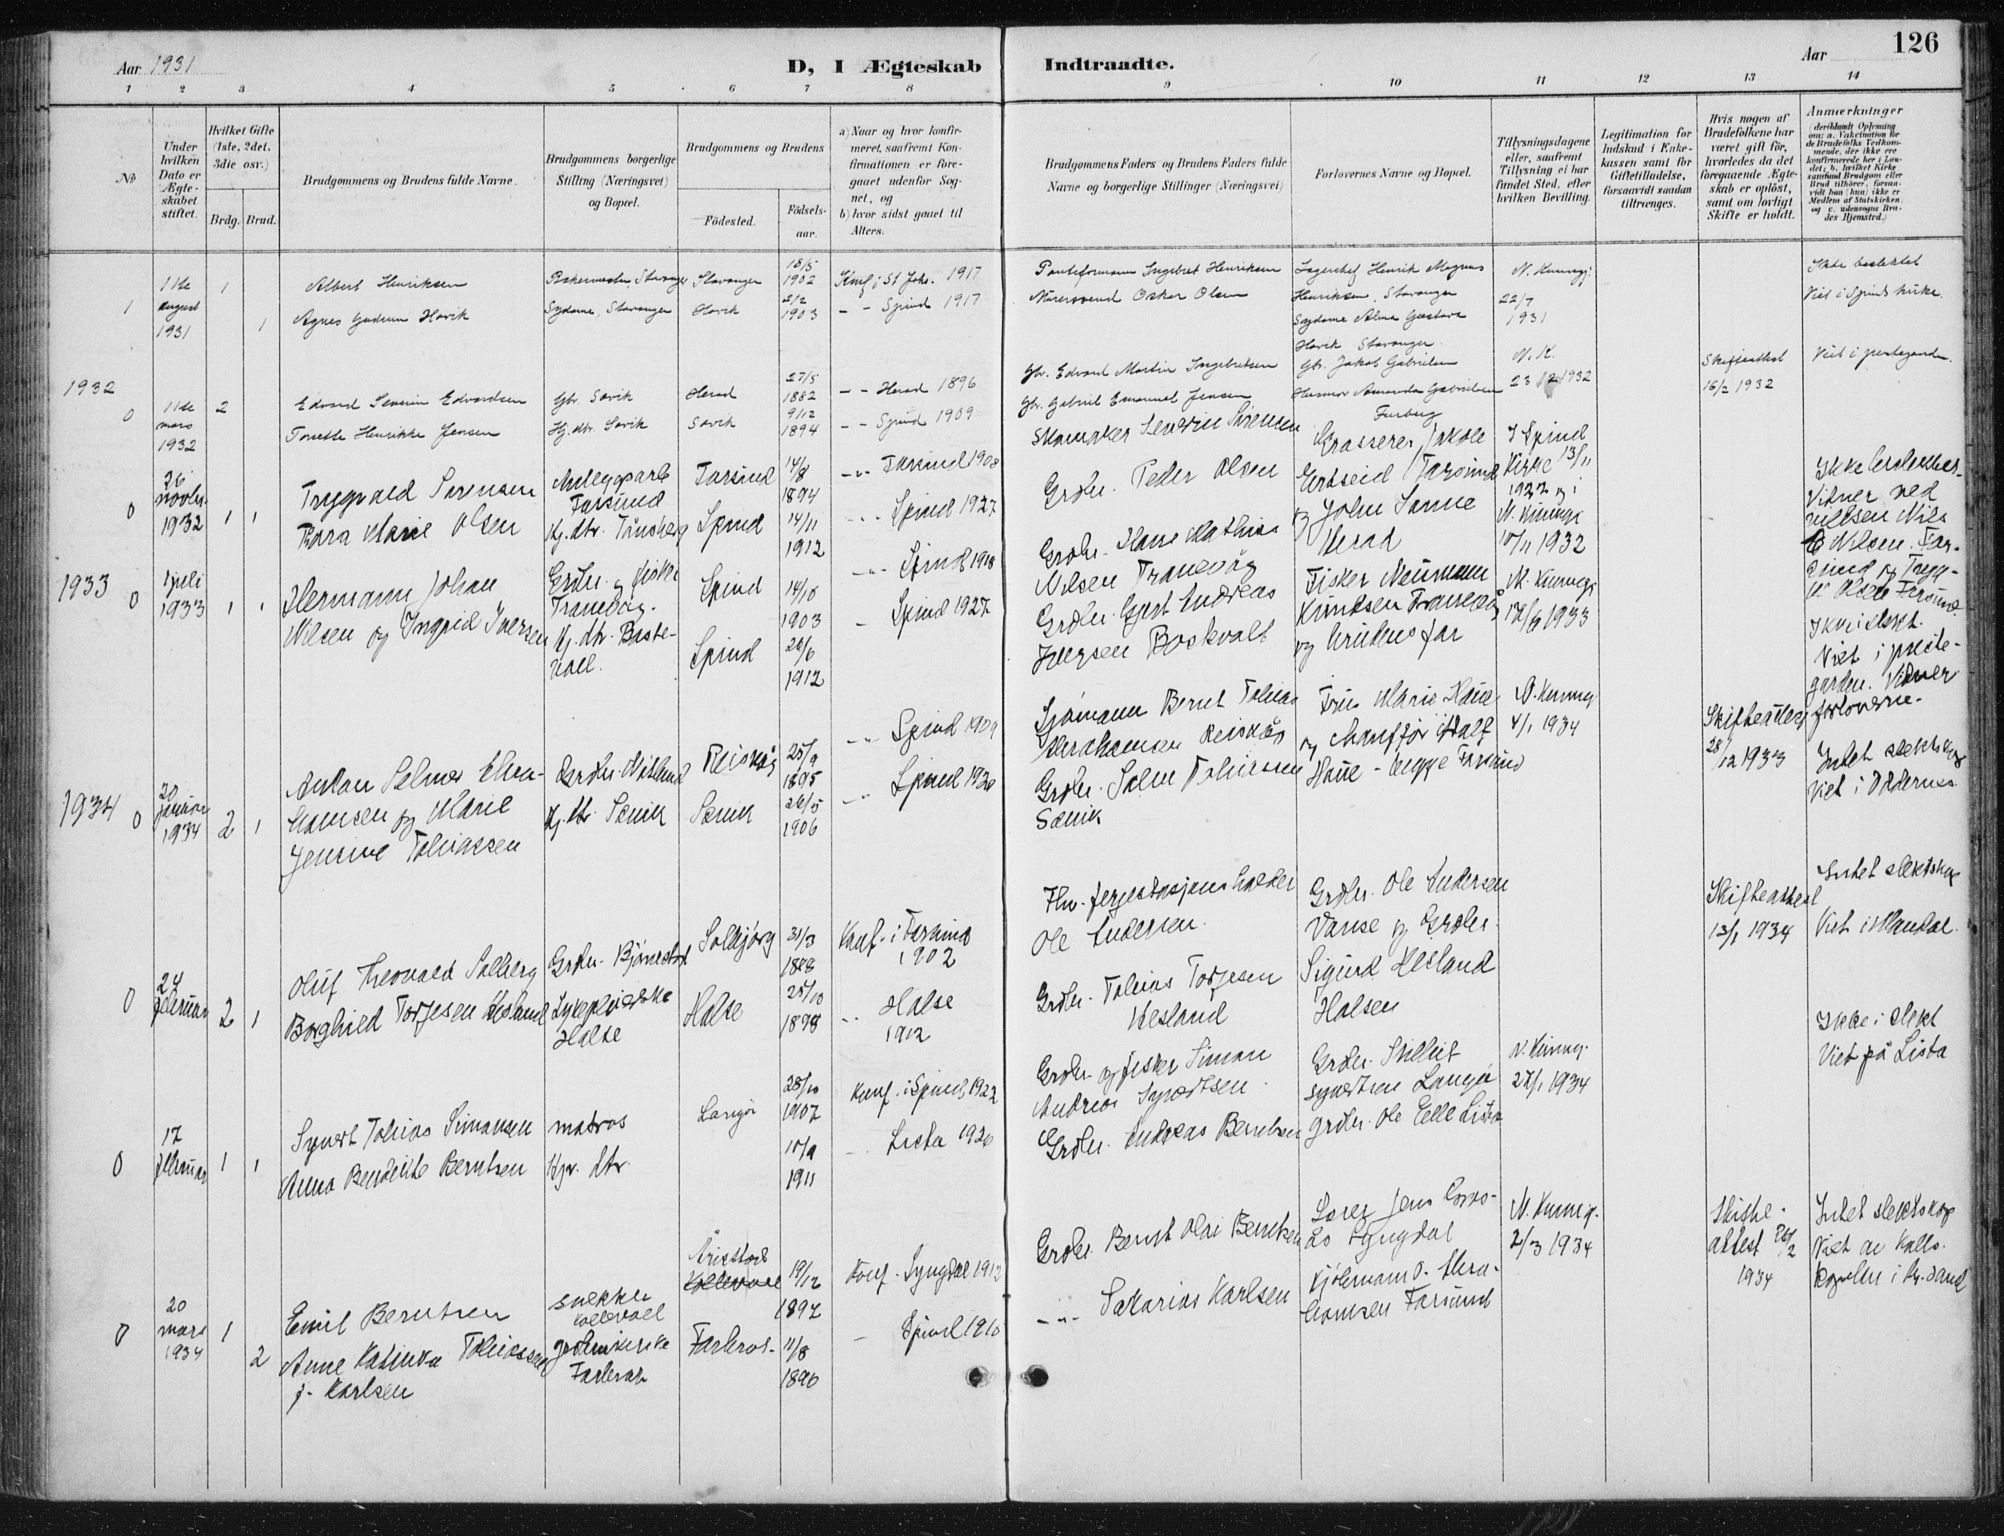 Aar 1931
D, I Ægteskab Indtraadte.
Aar
126
1 2 3 4 5 6 7 8 9 10 11 12 13 14
No
Under hvilken Dato er Ægteskabet stiftet.
Hvilket Gifte (1ste, 2det, 3die osv.)
Brdg. Brud.
Brudgommens og Brudens fulde Navne.
Brudgommens borgerlige Stilling (Næringsvei) og Bopæl.
Brudgommens og Brudens
Födested.
Födselsaar.
a) Naar og hvor konfirmeret, saafremt Konfirmationen er foregaaet udenfor Sognet, og
b) hvor sidst gaaet til Alters.
Brudgommens Faders og Brudens Faders fulde Navne og borgerlige Stillinger (Næringsvei)
Forlovernes Navne og Bopæl.
Tillysningsdagene eller, saafremt Tillysning ei har fundet Sted, efter hvilken Bevilling.
Legitimation for Indskud i Enkekassen samt for Giftetilladelse, forsaavidt saadan tiltrænges.
Hvis nogen af Brudefolkene har været gift för, hvorledes da det foregaaende Ægteskab er oplöst, samt om lovligt Skifte er holdt.
Anmerkninger
(deriblandt Oplysning om: a. Vakcination for de Brudefolks Vedkommende, der ikke ere konfirmerede her i Landet; b. hvilket Kirkesamfund Brudgom eller Brud tilhörer, forsaavidt han (hun) ikke er Medlem af Statskirken, og c. udensogns Brudes Hjemsted.)
1
11te august 1931
1
1
Albert Henriksen
Agnes Gudrun Hovik
Bakermester Stavanger
Sydame, Stavanger
Stavanger
Hovik
18/5 1902
2/2 1903
Konf i St Joh. 1917
- - Spind 1917
Ingebret Henriksen
Oskar Olsen
Lagerchef Henrik Magnus Henriksen, Stavanger
Sydame Alma Gustava Hovik Stavanger.
N. Kunngj.
22/7 1931
Ikke beslektet
Viet i Spind kirke.
1932
0
11te mars 1932
2
Edvard Severin Edvardsen
Tonette Henrikke Jensen
Gbr. Sævik
Hj. dtr. Sævik
Herad
Sævik
27/5 1882
9/12 1894
- - Herad 1896
- - Spind 1909
Gbr. Edvard Martin Ingebretsen
Gbr. Gabriel Emanuel Jensen
Gbr. Jakob Gabrielsen
Husmor Amanda Gabrielsen
N. K.
23/2 1932
Skifteattest
16/2 1932
Viet i prestegarden.
0
26 novbr. 1932
1 1
Trygvald Sørensen
Thora Marie Olsen
Anleggsarb. Farsund
Hj. dtr. Tånsberg
Farsund
Spind
14/8 1894
14/11 1912
-"- Farsund 1908
-"- Spind 1927
Skomaker Severin Sørensen
Grdbr. Peder Olsen
Kasserer Jakob Eidseid Farsund
og John Sanne Herad
I Spind Kirke 13/11 1932 og i
N. Kunngj. 15/11 1932
Ikke beslektet.
Vidner ved vielsen Nils E Nilsen Farsund og Trygve Olsen Farsund.
1933
0
1 juli 1933
1 1
Hermann Johan Nilsen og Ingrid Iversen
Grdbr. og fisker Tranevåg.
Hj. dtr. Bostevoll.
Spind
Spind
14/10 1903
26/6 1912
-"- Spind 1918
- Spind 1927
Grdbr. Hans Mathias Nilsen Tranevåg
Grdbr. Gjert Andreas Iversen
Fisker Neumann Knudsen Tranevåg og brudens far
N. Kunngj.
17/6 1933
Ikke i slekt.
Viet i prestegarden. Vidner forloverne.
1934
0
20 januar 1934
2 1
Anton Selmer Abrahamsen og Marie Jensine Tobiassen
Grdbr.
Hj. dtr. Sævik
Reisvåg
Sævik
25/9 1895
26/5 1906
-"- Spind 1909
-"- Spind 1920
Sjømann Bernt Tobias Abrahamsen Reisvåg
Grdbr. Salm Tobiassen Sævik
Fru Marie Haue og chauffør Half Haue - begge Farsund
N. Kunngj
4/1 1934
Skifteattest
28/12 1933
Intet slektskap
Viet i Oddernes
0
24 februar
2 1
Oluf Theovald Solberg
Borghild Torjesen Hesland
Grdbr. Bjørnestad
Sykepleierske Halse
Solbjørg
Halse
31/3 1888
25/10 1898
Konf. i Farsund 1902
-"- Halse 1912
Fhv. fergestasjonsholder Ole Andersen.
Grdbr. Tobias Torjesen Hesland
Grdbr. Ole Andersen Vanse og Grdbr. Sigurd Hesland Halsen
Skifteattest
13/1 1934
Intet slektskap
Viet i Mandal.
0
17 februar
1 1
Syvert Tobias Simonsen
Anna Bendikte Berntsen
matros
Hj. dtr.
Langø
28/10 1907
10/9 1911
Konf. i Spind 1922
-"- Lista 1926
Grdbr. og fisker Simon Andreas Syvertsen.
Grdbr. Andreas Berntsen
Grdbr. Syvertsen Langø
grdbr. Ole Eelle Lista
N. Kunngj.
27/1 1934
Ikke i slekt
Viet på Lista
0
20 mars 1934
1
2
Emil Berntsen
Anne Katinka Tobiassen f. Karlsen
snekker Kollevoll
Farbrot
Årestad
Kollevoll
Farbrot
19/12 1892
11/8 1896
Konf. Lyngdal 1912
- Spind 1910
Grdbr. Bernt Olai Berntsen
-"- Sakarias Karlsen
Lærer Jens Lyngdal
Kjøbmann O. Abrahamsen Farsund
N. Kunngj.
2/3 1934
Skifteattest 26/2 1934
Intet slektskap
Viet av Kallskapellan i Kr. sand